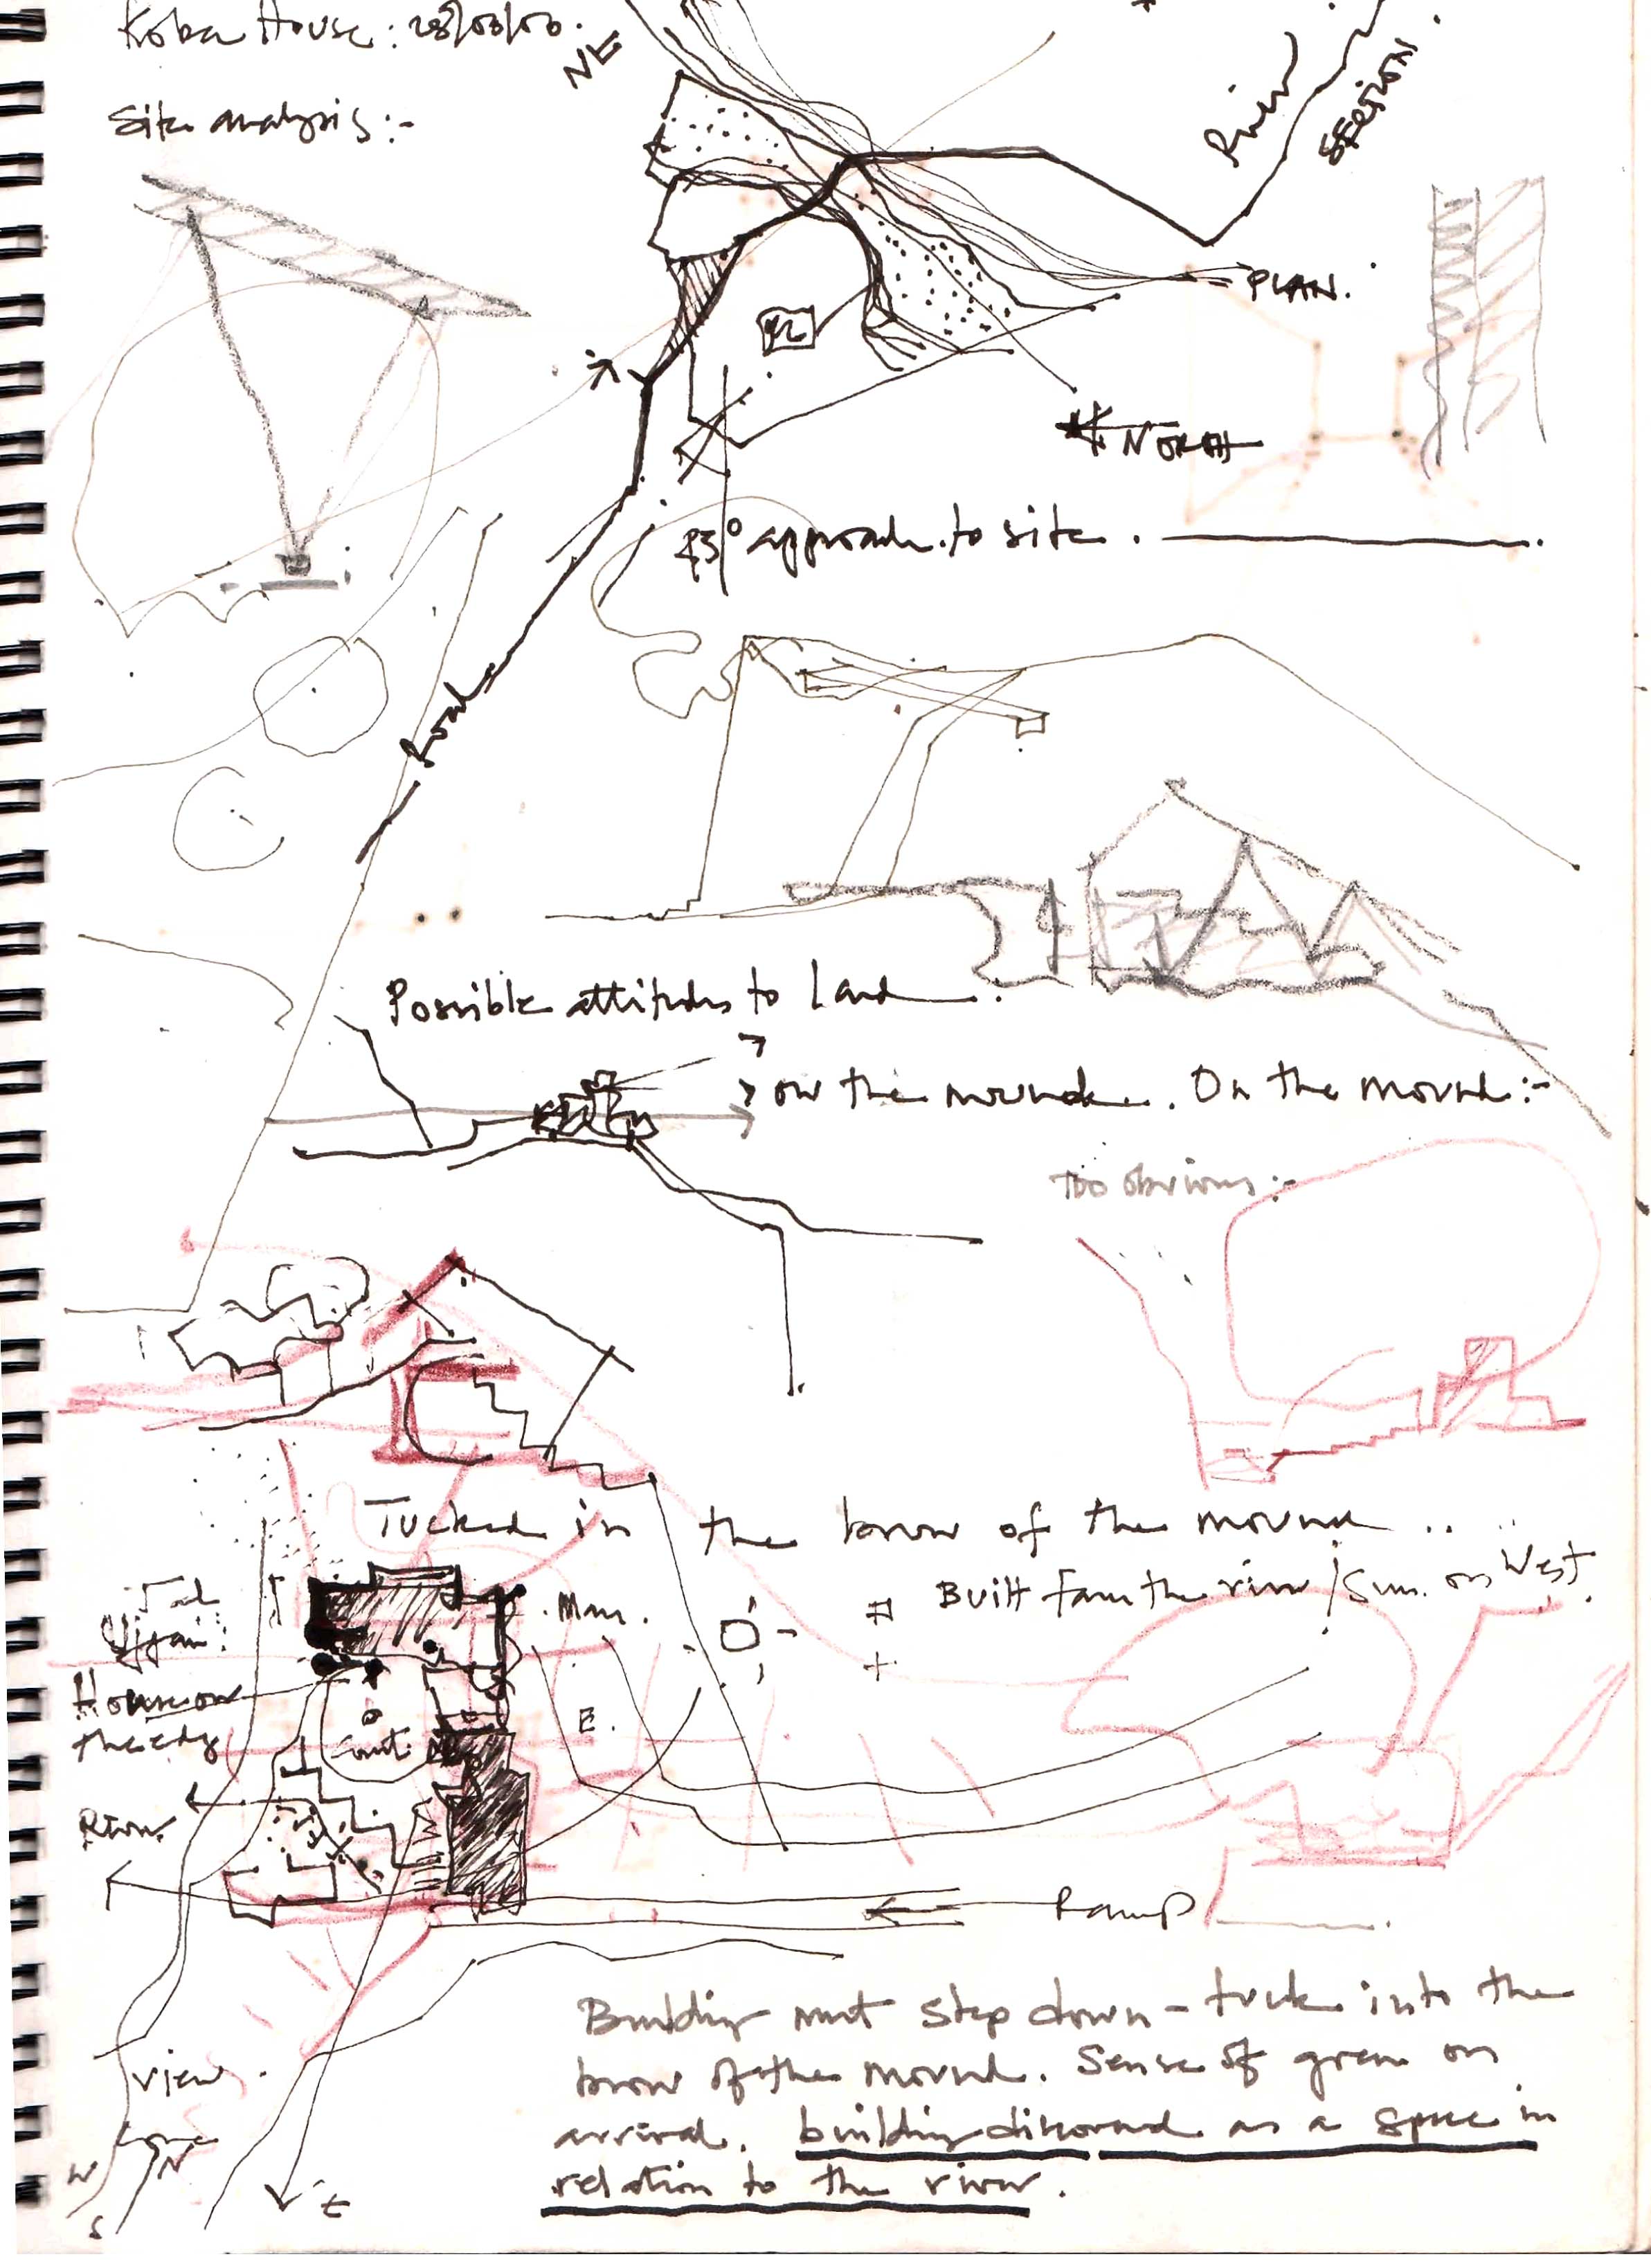 Koba House: 28/03/00.
NE
Site analysis:-
River
SECTION
PLAN.
NORTH
45° approach to site.
Road
Possible attitudes to land.
on the mound. On the mound:-
Too obvious:-
Tucked in the brow of the mound ..
Built from the river / Sun. on West.
House on
the edge
E.
River
Ramp
view
cone
W
N
S
E
Building must step down - tuck into the
brow of the mound. Sense of green on
arrival. building discovered as a space in
relation to the river.